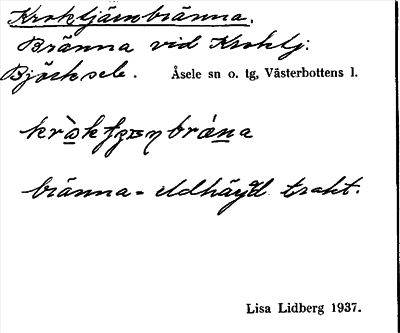 Kroktjärnbränna.
Bränna vid Kroktj.
Björksele. Åsele sn o. tg, Västerbottens l.
bränna = eldhärjad trakt.
Lisa Lidberg 1937.